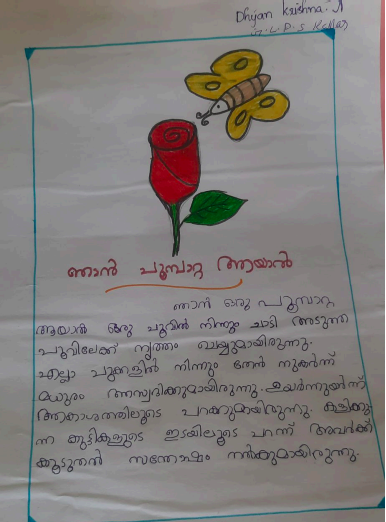 Dhyan Krishna. A
ഞാൻ പൂമ്പാറ്റ ആയാൽ
ഞാൻ ഒരു പൂമ്പാറ്റ
ആയാൽ ഒരു പൂവിൽ നിന്നും ചാടി അടുത്ത
പൂവിലേക്ക് നൃത്തം ചെയ്യുമായിരുന്നു.
എല്ലാ പൂക്കളിൽ നിന്നും തേൻ നുകർന്ന്
മധുരം ആസ്വദിക്കുമായിരുന്നു. ഉയർന്നുയർന്ന്
ആകാശത്തിലൂടെ പറക്കുമായിരുന്നു. കളിക്കു
ന്ന കുട്ടികളുടെ ഇടയിലൂടെ പറന്ന് അവർക്ക്
കൂടുതൽ സന്തോഷം നൽകുമായിരുന്നു.